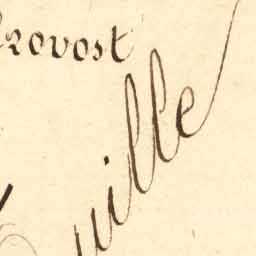 Provost
uille